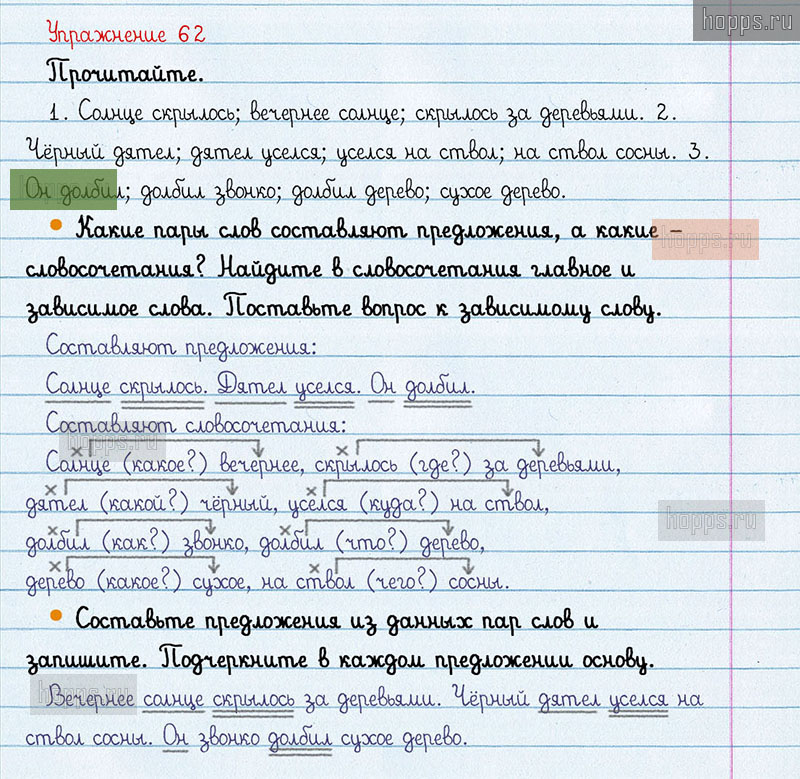 hopps.ru
Упражнение 62
Прочитайте.
1. Солнце скрылось; вечернее солнце; скрылось за деревьями. 2.
Чёрный дятел; дятел уселся; уселся на ствол; на ствол сосны. 3.
Он долбил; долбил звонко; долбил дерево; сухое дерево.
• Какие пары слов составляют предложения, а какие –
hopps.ru
словосочетания? Найдите в словосочетания главное и
зависимое слова. Поставьте вопрос к зависимому слову.
Составляют предложения:
Солнце скрылось. Дятел уселся. Он долбил.
Составляют словосочетания:
hopps.ru
Солнце (какое?) вечернее, скрылось (где?) за деревьями,
дятел (какой?) чёрный, уселся (куда?) на ствол,
hopps.ru
долбил (как?) звонко, долбил (что?) дерево,
дерево (какое?) сухое, на ствол (чего?) сосны.
• Составьте предложения из данных пар слов и
запишите. Подчеркните в каждом предложении основу.
hopps.ru
Вечернее солнце скрылось за деревьями. Чёрный дятел уселся на
ствол сосны. Он звонко долбил сухое дерево.